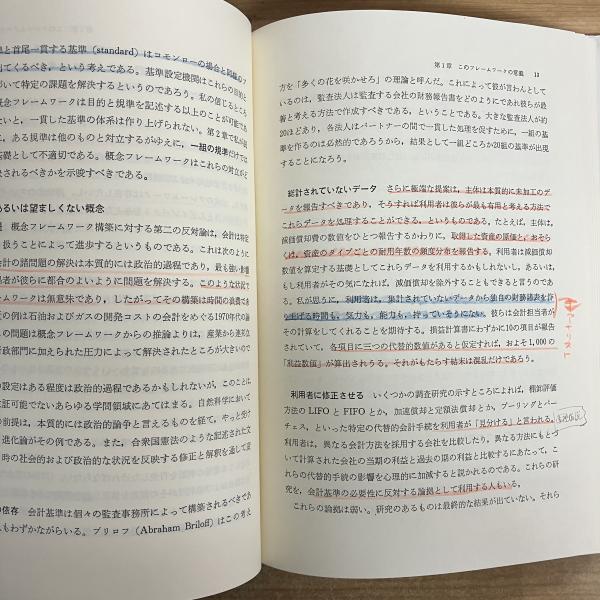 と首尾一貫する基準（standard）はコモンローの場合と同様の
出てくるべき，という考えである。基準設定機関はこれらの目的と
づいて特定の課題を解決するというのであろう。私の信じるところ
概念フレームワークは目的と規準を記述する以上のことが可能であ
ないと，一貫した基準の体系は作り上げられない。第2章で私が
に，ある規準は他のものと対立するがゆえに，一組の規準だけでは
基礎として不適切である。概念フレームワークはこれらの対立が
決されるべきかを示唆すべきである。
あるいは望ましくない概念
概念フレームワーク構築に対する第二の反対論は，会計は特定
扱うことによって進歩するというものである。これは次のように
会計の諸問題の解決は本質的には政治的過程であり，最も強い影響
者が彼らに都合のよいように問題を解決する。このような状況で
ワークは無意味であり，したがってその構築は時間の浪費であ
近の例は石油およびガスの開発コストの会計をめぐる1970年代の論
の問題は概念フレームワークからの推論よりは，産業から連邦立
行政部門に加えられた圧力によって解決されたところが大きい。
の設定はある程度は政治的過程であるかもしれないが，このことに
検証可能でないあらゆる学問領域にあてはまる。自然科学において
の前提は，本質的には政治的論争と言えるものを経て，やっと受け
進化論がその例である。また，合衆国憲法のような記述された文
時の社会的および政治的な状況を反映する修正と解釈を通して変
の依存　会計基準は個々の監査事務所によって構築されるべきであ
もわずかながらいる。ブリロフ（Abraham Briloff）はこの考え
第1章　このフレームワークの意義　13
方を「多くの花を咲かせろ」の理論と呼んだ。これによって彼が言わんとして
いるのは，監査法人は監査する会社の財務報告書をどのようにであれ彼らが最
善と考える方法で作成すべきであるということである。大きな監査法人が約
20ほどあり，各法人はパートナーの間で一貫した処理を促すために，一組の基
準を作るのは必然的であろうから，結果として一組どころか20組の基準が出現
することになろう。
総計されていないデータ　さらに極端な提案は，主体は本質的に未加工のデ
ータを報告すべきであり，そうすれば利用者は彼らが最も有用と考える方法で
これらデータを処理することができる，というものである。たとえば，主体は，
減価償却費の数値をひとつ報告するかわりに，取得した資産の原価と，おそら
くは，資産のタイプごとの耐用年数の頻度分布を報告する。利用者は減価償却
数値を算定する基礎としてこれらデータを利用するかもしれないし，あるいは，
もし利用者がその気になれば，減価償却を除外することもできると言うのであ
る。私が思うに，利用者は，集計されていないデータから独自の財務諸表を作
り上げる時間も，気力も，能力も，持っていそうにない。彼らは会計担当者が
その計算をしてくれることを期待する。損益計算書にわずかに10の項目が報告
されていて，各項目に三つの代替的数値があると仮定すれば，およそ1,000の
「利益数値」が算出されうる。それがもたらす結末は混乱だけであろう。
利用者に修正させる　いくつかの調査研究の示すところによれば，棚卸評価
方法のLIFOとFIFOとか，加速償却と定額法償却とか，プーリングとパー
チェス，といった特定の代替的会計手続を利用者が「見分ける」と言われる。
利用者は，異なる会計方法を採用する会社を比較したり，異なる方法にもとづ
いて計算された会社の当期の利益と過去の期の利益と比較するにあたって，こ
れらの代替的手続の影響を心理的に加減すると説かれるのである。これらの研
究を，会計基準の必要性に反対する論拠として利用する人もいる。
これらの論拠は弱い。研究のあるものは最終的な結果が出ていない。それら
アナリスト